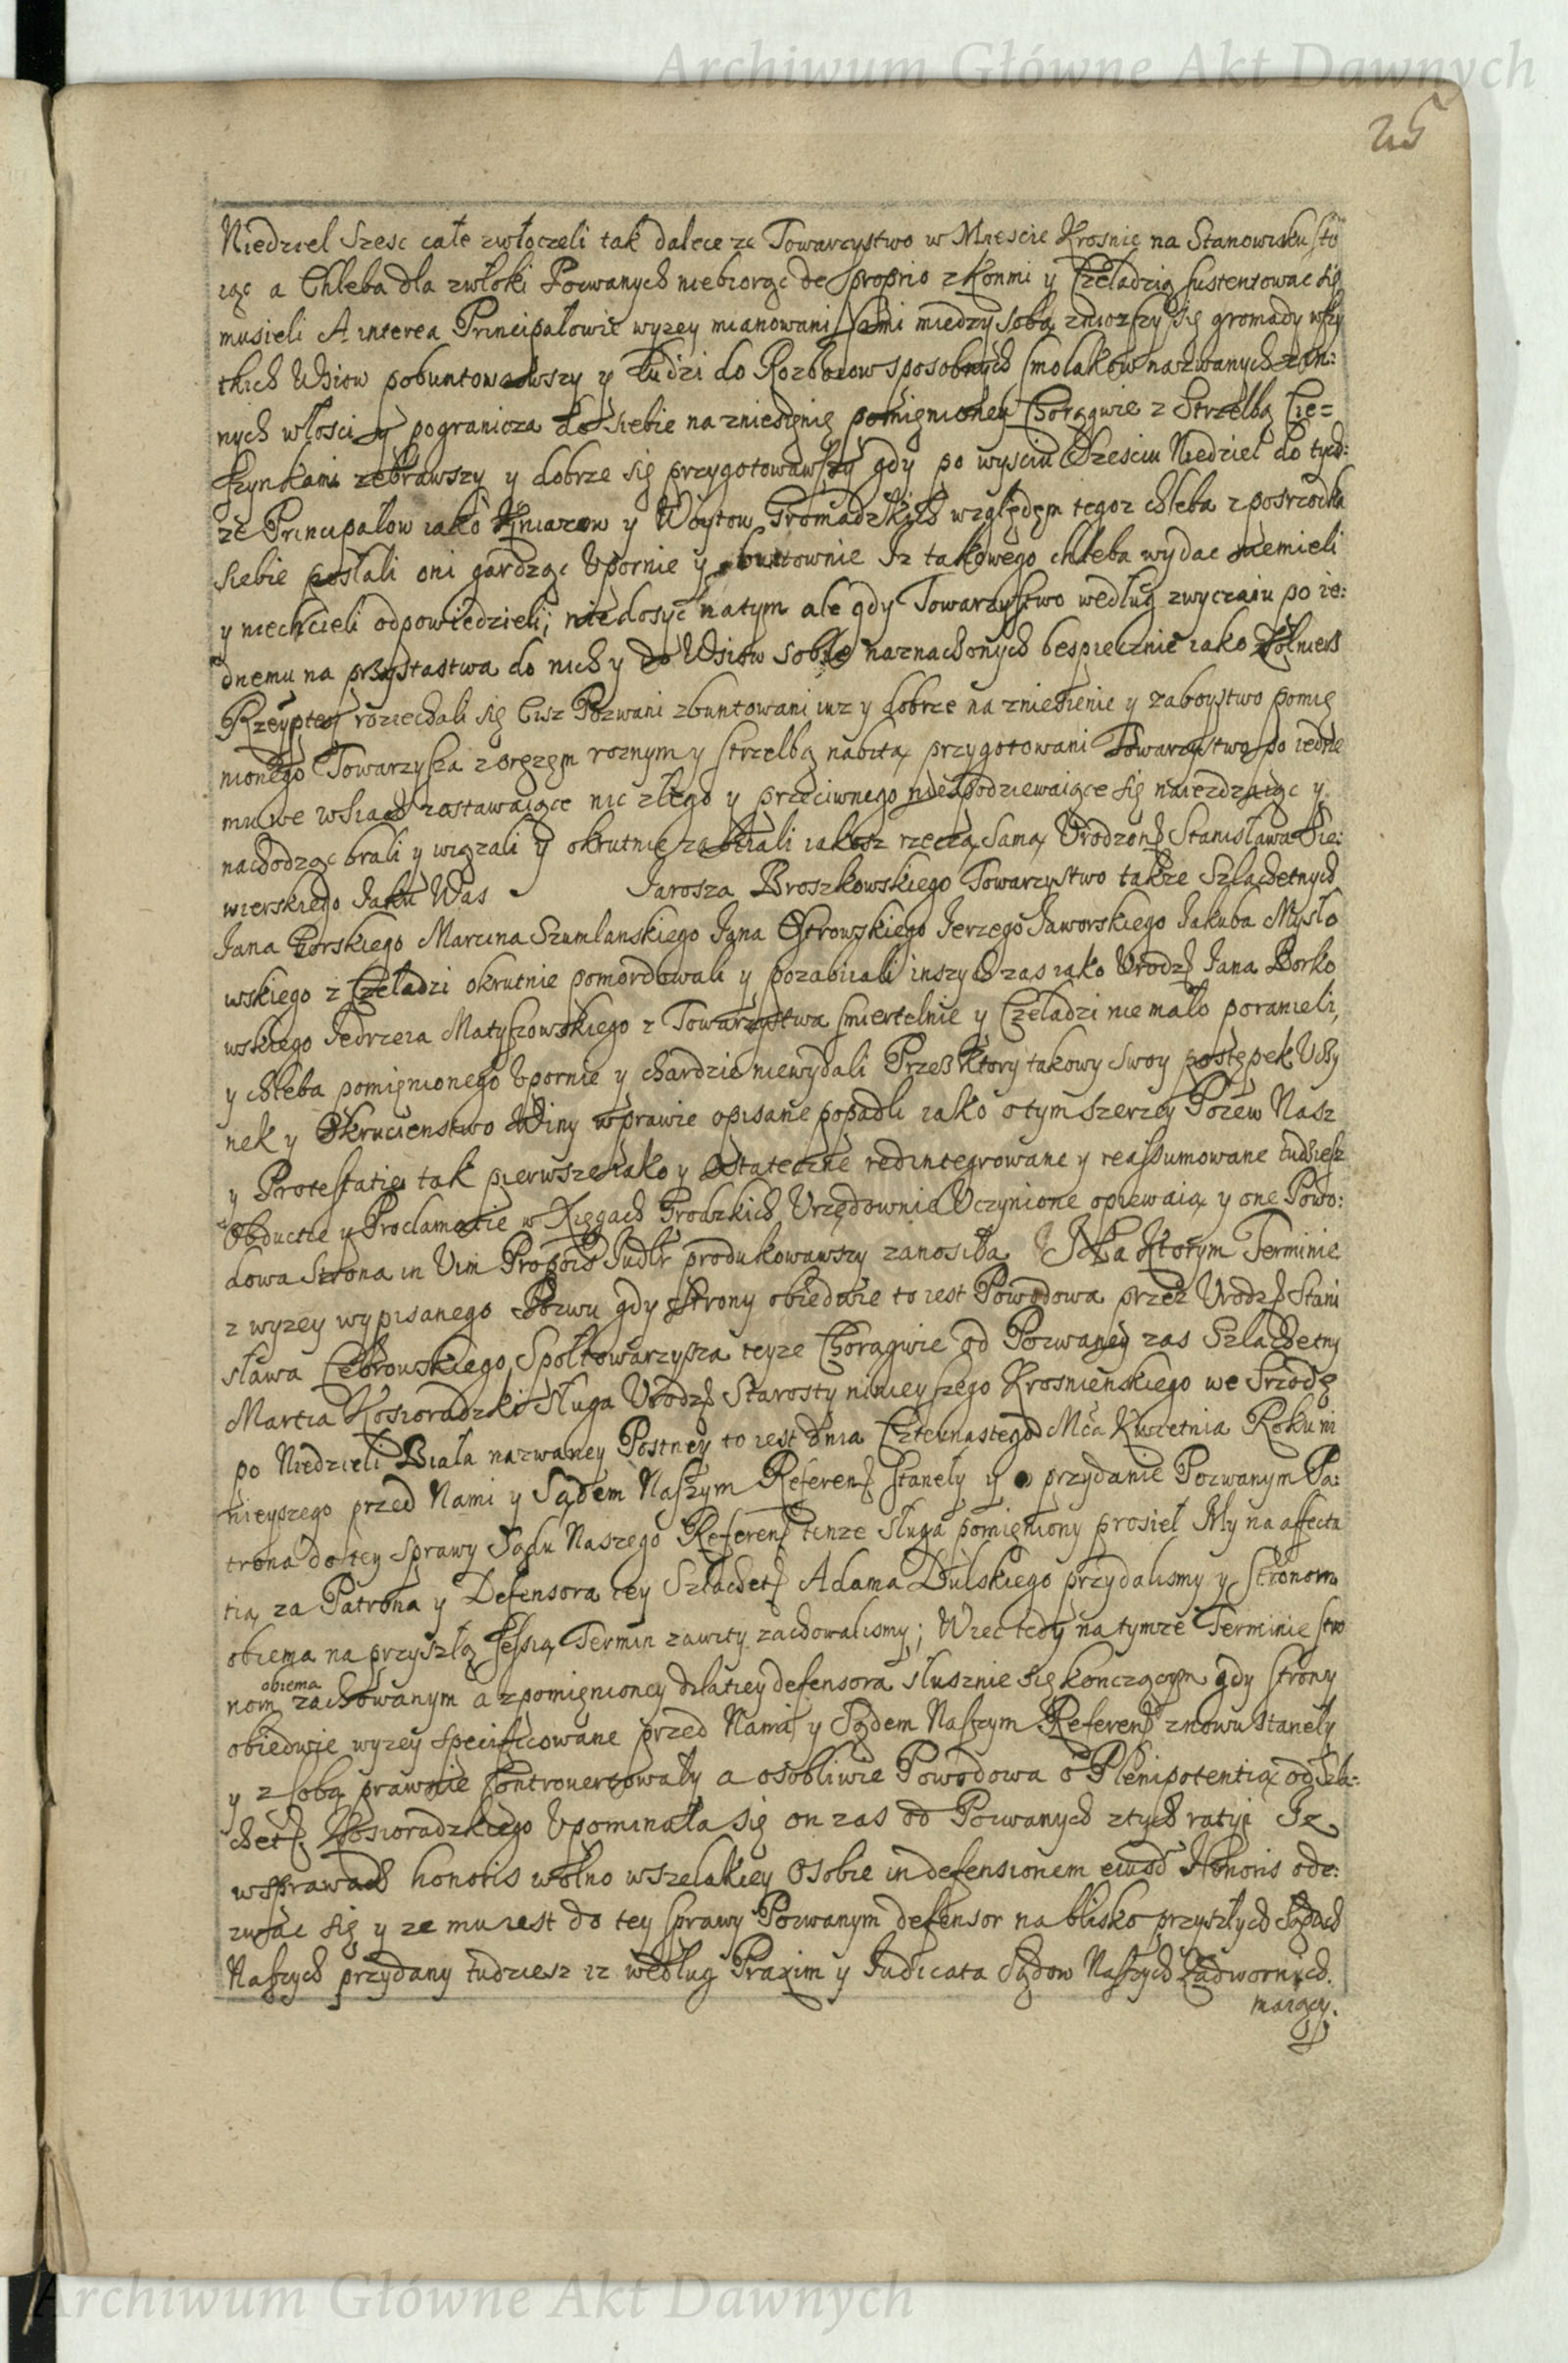 Archiwum Główne Akt Dawnych
25
Niedziel szesc całe zwłoczeli tak dalece ze Towarzystwo w Miescie Krosnie na Stanowisku sto
iąc a Chleba dla zwłoki Pozwanych niebiorąc de proprio z Konmi y Czeladzią sustentowac się
musieli A interea Principałowie wyzey mianowani sami miedzy sobą zniozszy się gromady wszy
tkich Wsiow pobuntowawszy y Ludzi do Rozboiow sposobnych smolakow nazwanych z in:
nych włosci y pogranicza do siebie na zniesięnię pomięnioney Chorągwie z Strzelbą Cie=
szynkami zebrawszy y dobrze się przygotowawszy gdy po wysciu Szesciu Niedziel do tych:
ze Principałow iako Kniazow y Woytow Gromadzkich względęm tegoz chleba z posrzodka
siebie posłali oni gardząc Upornie y buntownie Iz takowego chleba wydac niemieli
y niechcieli odpowiedzieli; niedosyc natym ale gdy Towarzystwo według zwyczaiu po ie:
dnemu na przystastwa do nich y do Wsiow sobie naznaczonych bespiecznie iako Zołnierz
Rzeyptey roziechali się Ciz Pozwani zbuntowani iuz y dobrze na zniesienie y zaboystwo pomię
nionego Towarzysza z oręzęm roznym y strzelbą nabitą przygotowani Towarzystwo po iedne
mu we wsiach zostawaiące nic złego y przeciwnego niespodziewaiące się naiezdzaiąc y
nachodząc brali y wiązali y okrutnie zabiiali iakosz rzeczą samą Urodzon Stanisława Sie:
wierskiego Iaku Was Jarosza Broszkowskiego Towarzystwo takze Szlachetnych
Jana Gorskiego Marcina Szumlanskiego Jana Ostrowskiego Jerzego Jaworskiego Jakuba Mysło
wskiego z Czeladzi okrutnie pomordowali y pozabiiali inszych zas iako Urodz Jana Borko
wskiego Jedrzeia Matyszowskiego z Towarzystwa smiertelnie y Czeladzi nie mało poranieli,
y chleba pomięnionego Upornie y chardzie niewydali Przez Ktory takowy swoy postępek Uczy
nek y Okrucienstwo Winy w prawie opisane popadli iako o tym szerzey Pozew Nasz
y Protestatie tak pierwsze iako y Ostateczne redintegrowane y reassumowane tudziesz
Obductie y Proclamatie w Xięgach Grodzkich Urzędownie Uczynione opiewaią y one Powo:
dowa Strona in Vim Propois Judlr produkowawszy zanosiła Na Ktorym Terminie
z wyzey wypisanego Pozwu gdy strony obiedwie to iest Powodowa przez Urodz Stani
sława Cebrowskiego Społtowarzysza teyze Chorągwie od Pozwaney zas Szlachetny
Martia Kosioradzki Sługa Urodz Starosty ninieyszego Krosnienskiego we Srzodę
po Niedzieli Biała nazwaney Postney to iest dnia Czternastego Mca Kwietnia Roku ni
nieyszego przed Nami y Sądem Naszym Referen stanely y o przydanie Pozwanym Pa:
trona do tey sprawy Sądu Naszego Referen tenze sługa pomięniony prosieł My na affecta
tią za Patrona y Defensora tey Szlachet Adama Dulskiego przydalismy y stronom
obiema na przyszłą sessią Termin zawity zachowalismy; Wiec tedy na tymze Terminie stro
nom obiema zachowanym a z pomięnioney dilatiey defensora słusznie się konczącym gdy strony
obiedwie wyzey specificowane przed Nami y Sądem Naszym Referen znowu stanely
y z sobą prawnie kontrovertowały a osobliwie Powodowa o Plenipotentią od Szla:
chet Kosioradzkiego Upominała się on zas od Pozwanych z tych ratyi Iz
w sprawach honoris wolno wszelakiey Osobie in defensionem eiusd Honoris ode:
zwac się y ze mu iest do tey sprawy Pozwanym defensor na blisko przyszłych Sądach
Naszych przydany tudziesz iz według Praxim y Judicata Sądow Naszych Zadwornych
maiący.
Archiwum Główne Akt Dawnych